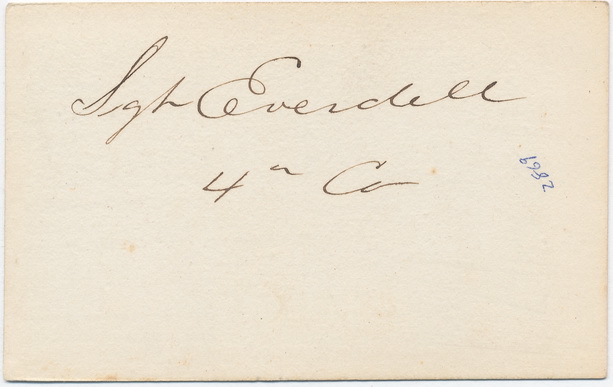 Sgt Everdell
4th Co
2869